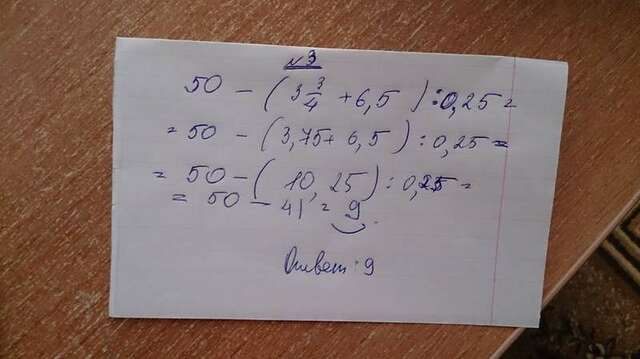 №3
50 - (3 3/4 + 6,5) : 0,25 =
= 50 - (3,75 + 6,5) : 0,25 =
= 50 - (10,25) : 0,25 =
= 50 - 41 = 9
Ответ: 9